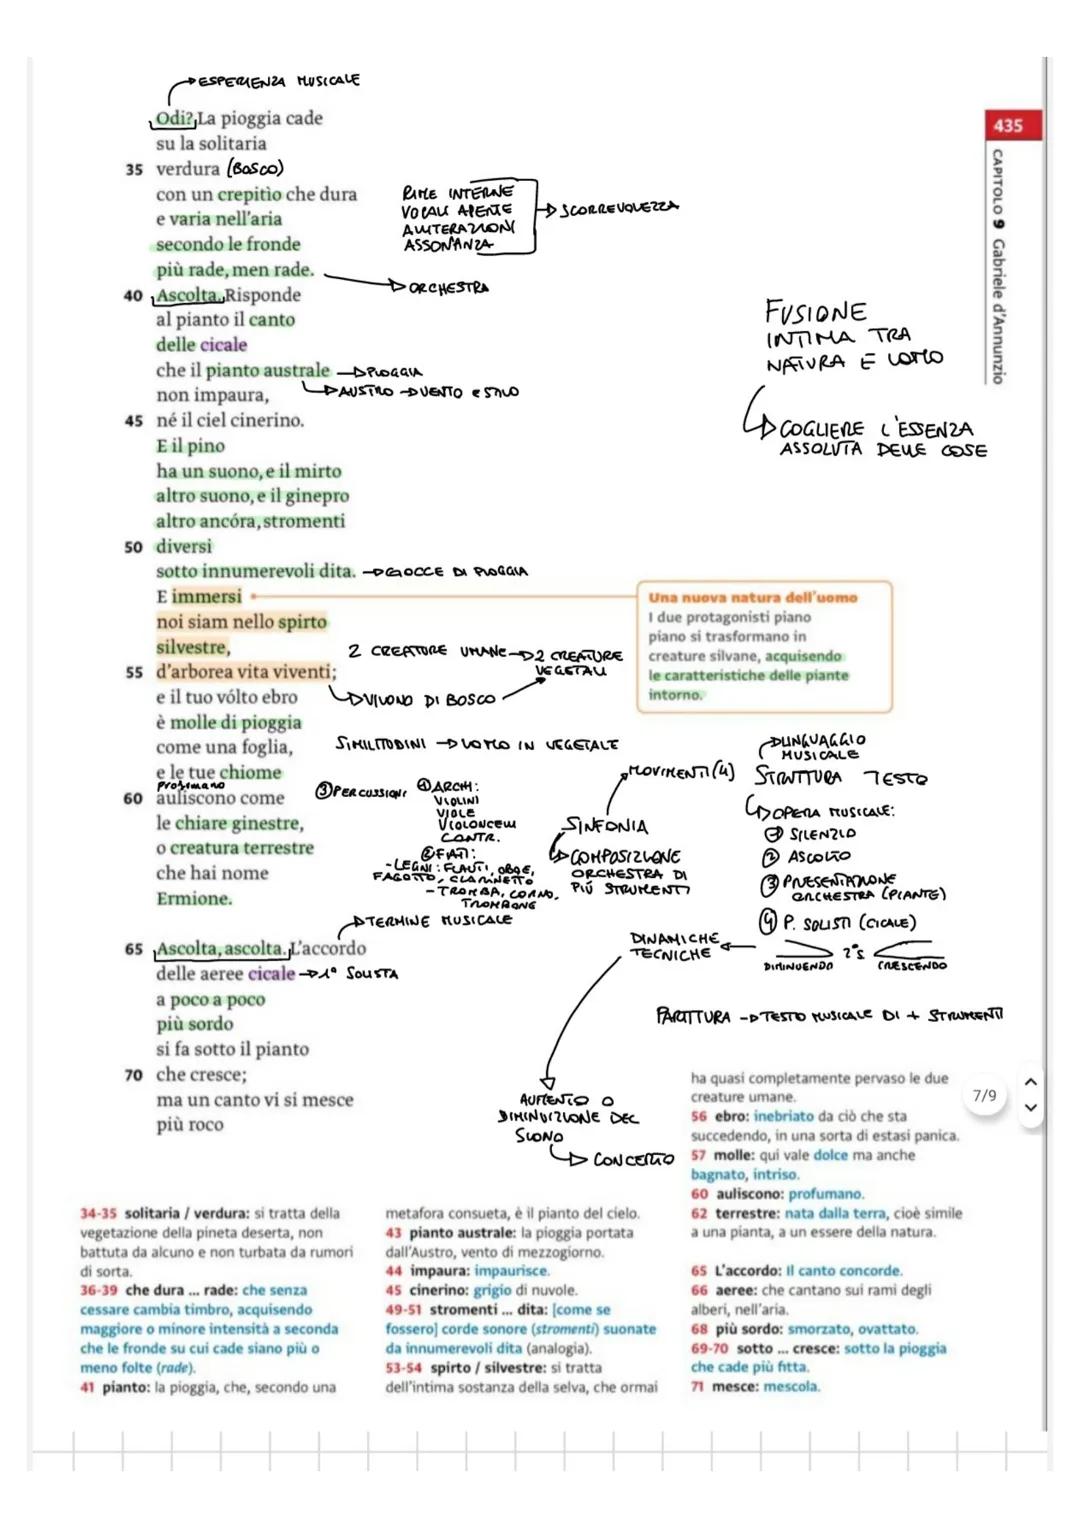 ESPERIENZA MUSICALE
Odi? La pioggia cade
su la solitaria
35 verdura (BOSCO)
con un crepitìo che dura
e varia nell'aria
secondo le fronde
più rade, men rade.
ORCHESTRA
RIME INTERNE
VOCALI APERTE
ALLITERAZIONI
ASSONANZA
SCORREVOLEZZA
40 Ascolta. Risponde
al pianto il canto
delle cicale
che il pianto australe → PIOGGIA
AUSTRO → VENTO ESTIVO
non impaura,
45 né il ciel cinerino.
E il pino
ha un suono, e il mirto
altro suono, e il ginepro
altro ancóra, stromenti
50 diversi
sotto innumerevoli dita. → GOCCE DI PIOGGIA
E immersi
noi siam nello spirto
silvestre,
55 d'arborea vita viventi;
VIVONO DI BOSCO
2 CREATURE UMANE → 2 CREATURE
VEGETALI
e il tuo vólto ebro
è molle di pioggia
come una foglia,
SIMILITUDINI → UOMO IN VEGETALE
e le tue chiome
profumano
60 auliscono come
le chiare ginestre,
o creatura terrestre
che hai nome
Ermione.
TERMINE MUSICALE
65 Ascolta, ascolta. L'accordo
delle aeree cicale → 1° SOLISTA
a poco a poco
più sordo
si fa sotto il pianto
70 che cresce;
ma un canto vi si mesce
più roco
435
CAPITOLO 9 Gabriele d'Annunzio
FUSIONE
INTIMA TRA
NATURA E UOMO
COGLIERE L'ESSENZA
ASSOLUTA DELLE COSE
Una nuova natura dell'uomo
I due protagonisti piano
piano si trasformano in
creature silvane, acquisendo
le caratteristiche delle piante
intorno.
③ PERCUSSIONI
① ARCHI:
VIOLINI
VIOLE
VIOLONCELLI
CONTR.
② FIATI:
- LEGNI: FLAUTI, OBOE,
FAGOTTO, CLARINETTO
- TROMBA, CORNO,
TROMBONE
MOVIMENTI (4)
SINFONIA
COMPOSIZIONE
ORCHESTRA DI
PIÚ STRUMENTI
LINGUAGGIO
MUSICALE
STRUTTURA TESTO
OPERA MUSICALE:
① SILENZIO
② ASCOLTO
③ PRESENTAZIONE
ORCHESTRA (PIANTE)
④ P. SOLISTI (CICALE)
DINAMICHE
TECNICHE
DIMINUENDO
2°s
CRESCENDO
PARTITURA → TESTO MUSICALE DI + STRUMENTI
AUMENTO O
DIMINUIZIONE DEL
SUONO
CONCERTO
7/9
34-35 solitaria / verdura: si tratta della
vegetazione della pineta deserta, non
battuta da alcuno e non turbata da rumori
di sorta.
36-39 che dura ... rade: che senza
cessare cambia timbro, acquisendo
maggiore o minore intensità a seconda
che le fronde su cui cade siano più o
meno folte (rade).
41 pianto: la pioggia, che, secondo una
metafora consueta, è il pianto del cielo.
43 pianto australe: la pioggia portata
dall'Austro, vento di mezzogiorno.
44 impaura: impaurisce.
45 cinerino: grigio di nuvole.
49-51 stromenti ... dita: [come se
fossero] corde sonore (stromenti) suonate
da innumerevoli dita (analogia).
53-54 spirto / silvestre: si tratta
dell'intima sostanza della selva, che ormai
ha quasi completamente pervaso le due
creature umane.
56 ebro: inebriato da ciò che sta
succedendo, in una sorta di estasi panica.
57 molle: qui vale dolce ma anche
bagnato, intriso.
60 auliscono: profumano.
62 terrestre: nata dalla terra, cioè simile
a una pianta, a un essere della natura.
65 L'accordo: Il canto concorde.
66 aeree: che cantano sui rami degli
alberi, nell'aria.
68 più sordo: smorzato, ovattato.
69-70 sotto ... cresce: sotto la pioggia
che cade più fitta.
71 mesce: mescola.